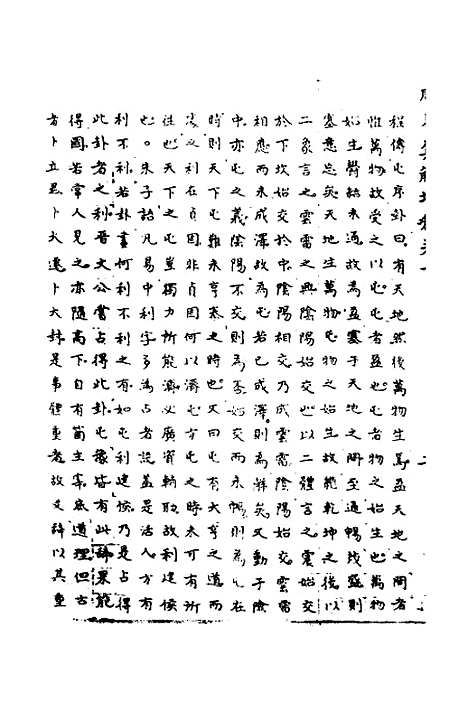 程傳屯序卦曰有天地然後萬物生焉盈天地之間者
惟萬物故受之以屯屯者盈也屯者物之始生也萬物
始生鬱結未通故為盈塞于天地之間至通暢茂盛則
塞意忘矣天地生萬物屯物之始生故繼乾坤之後以
二象言之雲雷之興陰陽始交也以二體言之震始交
於下坎始交於中陰陽相交乃成雲雷陰陽始交雲雷
相應而未成澤故為屯若已成澤則為解矣又動于險
中亦屯之義陰陽不交則為否始交而未暢則為屯在
時則天下屯難未亨泰之時也又曰屯有大亨之道而
處之利在貞固非貞固何以濟屯方屯之時未可有所
往也天下之屯豈獨力所能濟必廣資輔助故利建侯
也。朱子語凡易中利字多為占者設蓋是活人方有
利不利若卦畫何利不利之有如屯利建侯乃是占得
此卦者之利晉文公嘗占得此卦屯豫皆有此辭果能
得國若常人見之亦隨高下自有箇主宰底道理但古
者卜立君卜大遷卜大封是事體重者故爻辭以其重